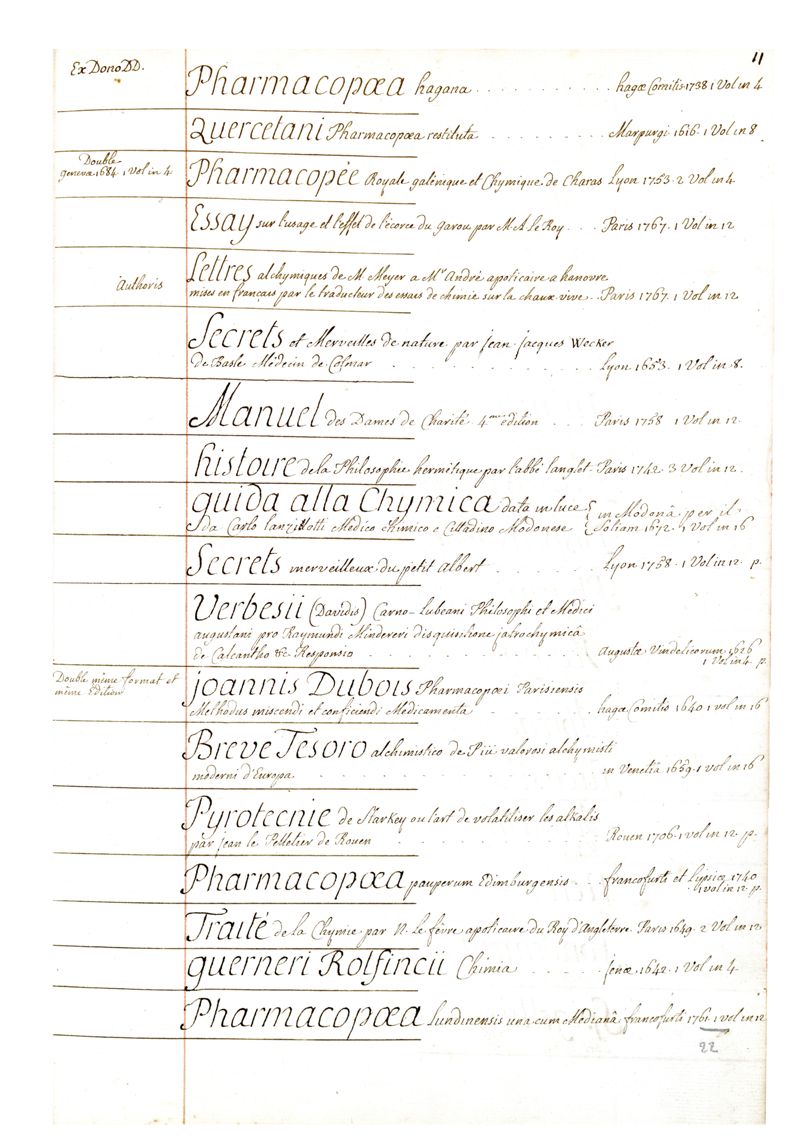 11
Ex Dono DD.
Pharmacopœa hagana . . . . . . . . . . hagæ Comitis 1738 1 Vol in 4
Quercetani Pharmacopœa restituta . . . . . . . . . . Marpurgi 1616. 1 Vol in 8
Double
genevæ 1684. 1 Vol in 4
Pharmacopée Royale galénique et Chymique de Charas Lyon 1753. 2 Vol in 4
Essay sur l'usage et l'effet de l'écorce du garou par M. A Le Roy . . . Paris 1767. 1 Vol in 12
Authoris
Lettres alchymiques de M Meyer a Mr André apoticaire a hanovre
mises en français par le traducteur des essais de chimie sur la chaux vive . . Paris 1767. 1 Vol in 12
Secrets et Merveilles de nature par jean jacques Wecker
de Basle Médecin de Colmar . . . . . . . . . . Lyon 1653. 1 Vol in 8.
Manuel des Dames de Charité 4me édition . . . . Paris 1758 1 Vol in 12
histoire de la Philosophie hermétique par l'abbé langlet. Paris 1742. 3 Vol in 12.
guida alla Chymica data in luce { in Modonā per il
da Carlo lanzillotti Medico Kimico e Cittadino Modonese { Soliam 1672. 1 Vol in 16
Secrets merveilleux du petit Albert . . . . . . . . Lyon 1758. 1 Vol in 12. p.
Verbesii (Davidis) Carno-lubeani Philosophi et Medici
augustani pro Raymundi Mindereri disquisitione jatrochymicâ
de Calcantho &c Responsio . . . . . . . . Augustæ Vindelicorum 1626
1 Vol in 4. p.
Double même format et
même édition
joannis Dubois Pharmacopœi Parisiensis
Methodus miscendi et conficiendi Medicamenta . . . . . . hagæ Comitis 1640 1 vol in 16
Breve Tesoro alchimistico de Più valorosi alchymisti
moderni d'Europa . . . . . . . . . . in Venetia 1659. 1 vol in 16
Pyrotecnie de Starkey ou l'art de volatiliser les alkalis
par jean le Pelletier de Rouen . . . . . . . . Rouen 1706. 1 vol in 12. p.
Pharmacopœa pauperum Edimburgensis . . . francofurti et Lypsiæ 1740
1 vol in 12. p.
Traité de la Chymie par N. Le fèvre apoticaire du Roy d'Angleterre. Paris 1649. 2 Vol in 12
guerneri Rolfincii Chimia . . . . . . . . jenæ 1642. 1 Vol in 4.
Pharmacopœa Lundinensis una cum Medianâ francofurti 1761. 1 Vol in 12
22